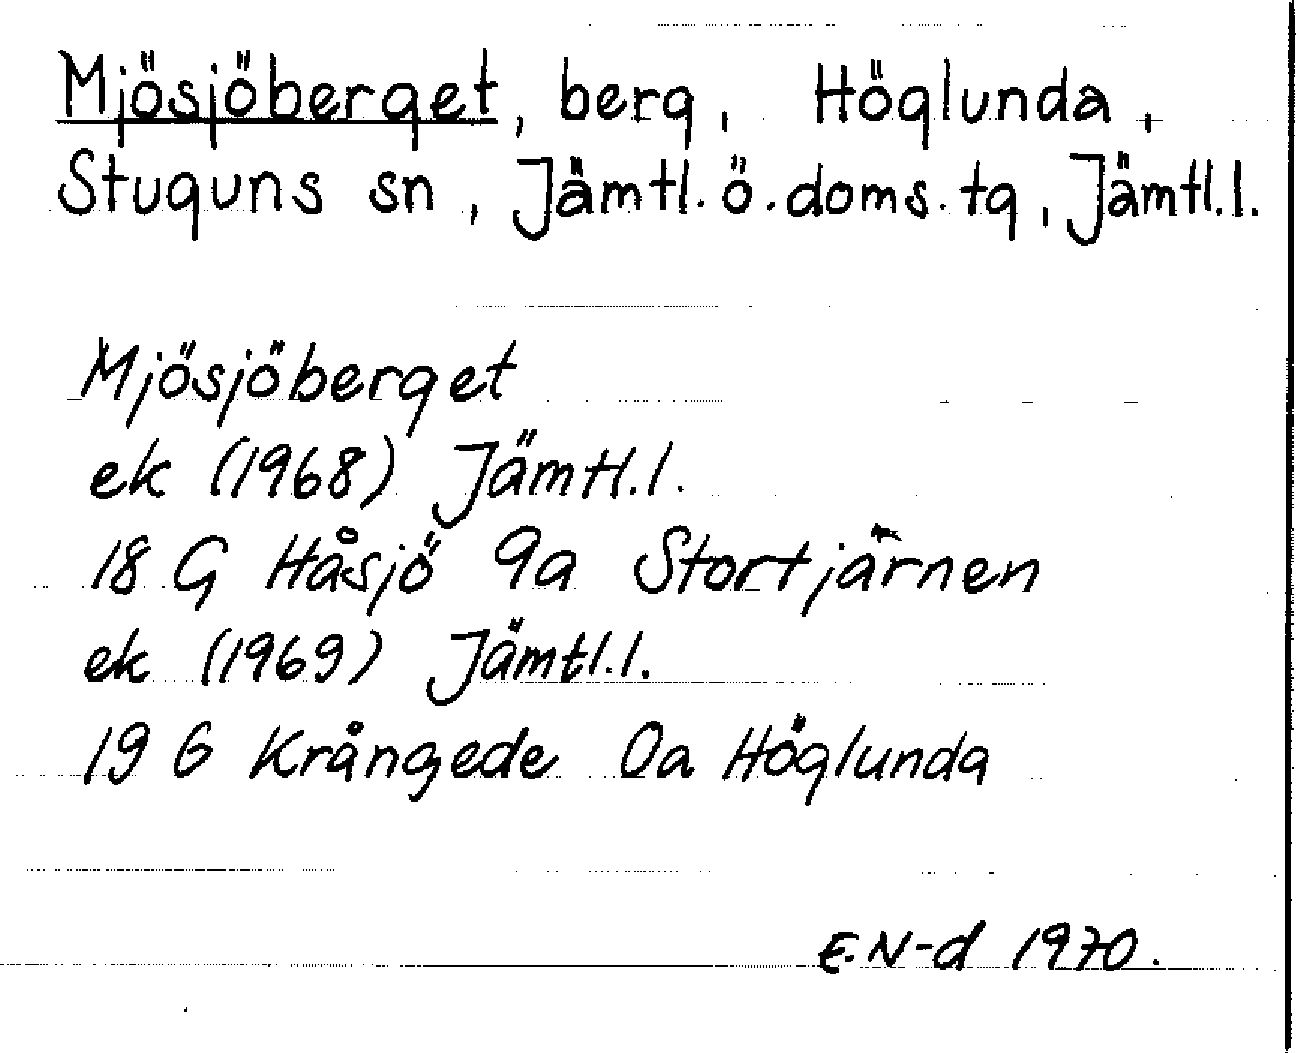 Mjösjöberget, berg, Höglunda,
Stuguns sn, Jämtl. ö. doms. tg, Jämtl.l.
Mjösjöberget
ek (1968) Jämtl.l.
18 G Håsjö 9a Stortjärnen
ek (1969) Jämtl.l.
19 G Krångede 0a Höglunda
E.N-d 1970.